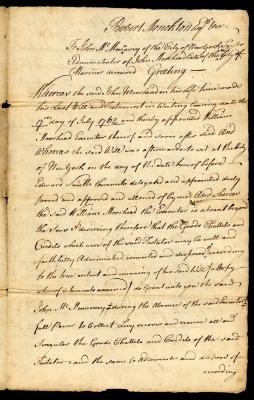 Robert Monckton Esqr
To John Mc. Mennomy of the City of New York
Administrator of John Morehead late of the City of
Mariner deceased Greeting
Whereas the said John Morehead in his life time made
his Last Will and Testament in Writing bearing date the
day of July 1762 and thereby appointed William
Morehead Executor thereof and soon after died And
Whereas the said Will was afterwards to wit at the City
of New York on the day of the date hereof before
Edward Smith thereunto delegated and appointed duely
proved and approved and allowed of by me And whereas
the said William Moorhead the Executor is absent beyond
the Seas I desiring therefore that the Goods Chattels and
Credits which were of the said Testator may be well and
faithfully Administered converted and disposed according
to the true intent and meaning of his said Will
hereunto annexed I do Grant unto you the said
John Mc. Mennomy during the Absence of the said Executor
full Power to Collect Levy recover and receive all and
Singular the Goods Chattels and Credits of the said
Testator and the same to Administer and dispose of
according